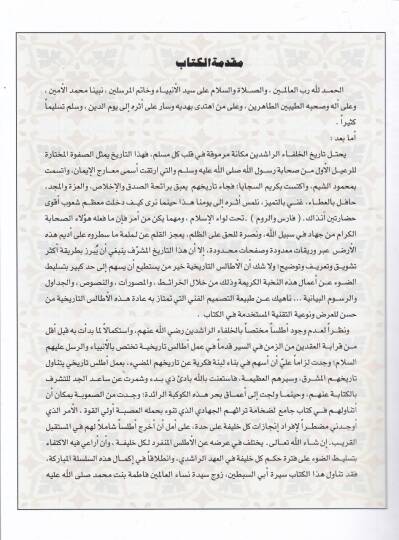 مقدمة الكتاب
الحمد لله رب العالمين ، والصلاة والسلام على سيد الأنبياء وخاتم المرسلين ، نبينا محمد الأمين ،
وعلى آله وصحبه الطيبين الطاهرين ، وعلى من اهتدى بهديه وسار على أثره إلى يوم الدين ، وسلم تسليماً
كثيراً .
أما بعد :
يحتل تاريخ الخلفاء الراشدين مكانة مرموقة في قلب كل مسلم، فهذا التاريخ يمثل الصفوة المختارة
للرعيل الأول من صحابة رسول الله صلى الله عليه وسلم والتي ارتقت أسمى معارج الإيمان، واتسمت
بمحمود الشيم، واكتست بكريم السجايا؛ فجاء تاريخهم يعبق برائحة الصدق والإخلاص، والعزة والمجد،
حافل بالعطاء، غني بالتميز، نلمس أثره إلى يومنا هذا حينما نرى كيف دخلت معظم شعوب أقوى
حضارتين آنذاك، ( فارس والروم ) ، تحت لواء الإسلام ، ومهما يكن من أمر فإن ما فعله هؤلاء الصحابة
الكرام من جهاد في سبيل الله، ونصرة للحق على الظلم، يعجز القلم عن لملمة ما سطروه على أديم هذه
الأرض عبر وريقات معدودة وصفحات محدودة، إلا أن هذا التاريخ المشرّف ينبغي أن يُبرز بطريقة أكثر
تشويق وتعريف وتوضيح؛ ولا شك أن الأطالس التاريخية خير من يستطيع أن يسهم إلى حد كبير بتسليط
الضوء عن أعمال هذه النخبة الكريمة وذلك من خلال الخرائط، والمصورات ، والنصوص، والجداول
والرسوم البيانية ... ناهيك عن طبيعة التصميم الفني التي تمتاز به عادة هذه الأطالس التاريخية من
حسن للعرض ونوعية التقنية المستخدمة في الكتاب .
ونظراً لعدم وجود أطلساً مختصاً بالخلفاء الراشدين رضي الله عنهم، واستكمالاً لما بدأت به قبل أقل
من قرابة العقدين من الزمن في السير قدماً في عمل أطالس تاريخية تختص بالأنبياء والرسل عليهم
السلام؛ وجدت لزاماً عليّ أن أسهم في بناء لبنة فكرية عن تاريخهم المضيء، بعمل أطلس تاريخي يتناول
تاريخهم المشرق، وسيرهم العظيمة، فاستعنت بالله بادئ ذي بدء وشمرت عن ساعد الجد للتشرف
بالكتابة عنهم، وحينما ولجت إلى أعماق بحر هذه الكوكبة الرائدة؛ وجدت من الصعوبة بمكان أن
أتناولهم في كتاب جامع لضخامة تراثهم الجهادي الذي تنوء بحمله العصبة أولي القوة ، الأمر الذي
أوجدني مضطراً لإفراد إنجازات كل خليفة على حدة، على أمل أن أخرج أطلساً شاملاً لهم في المستقبل
القريب، إن شاء الله تعالى. يختلف في عرضه عن الأطلس المنفرد لكل خليفة ، وأن أراعي فيه الاكتفاء
بتسليط الضوء على فترة حكم كل خليفة في العهد الراشدي، وانطلاقاً في إكمال هذه السلسلة المباركة،
فقد تناول هذا الكتاب سيرة أبي السبطين، زوج سيدة نساء العالمين فاطمة بنت محمد صلى الله عليه